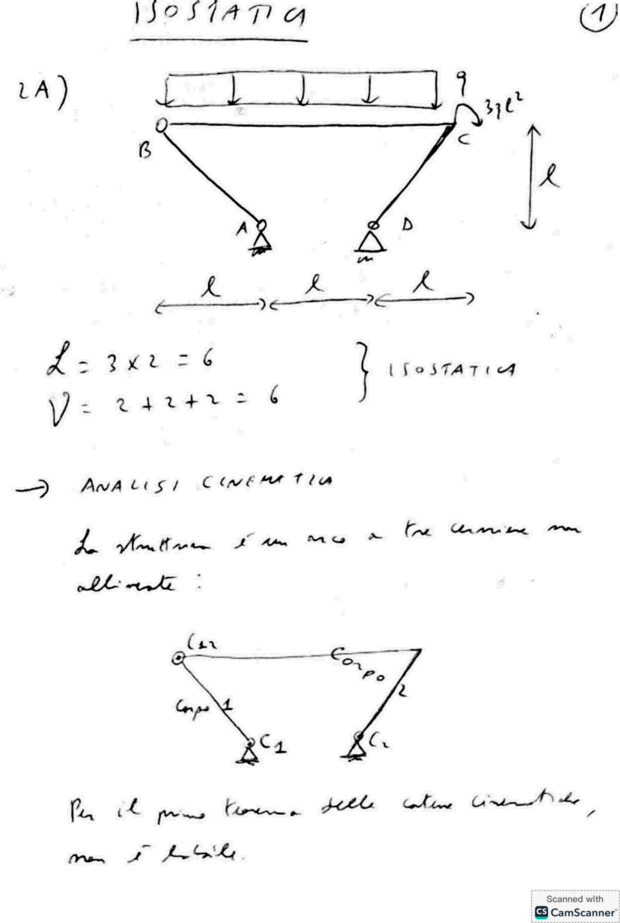 ISOSTATICA
1
2A)
q
3ql²
B
C
l
A
D
l
l
l
L = 3 x 2 = 6
V = 2 + 2 + 2 = 6
} ISOSTATICA
→ ANALISI CINEMATICA
La struttura è un arco a tre cerniere non
allineate :
C12
Corpo 2
Corpo 1
C1
C2
Per il primo teorema delle catene cinematiche,
non è labile.
Scanned with
CS CamScanner